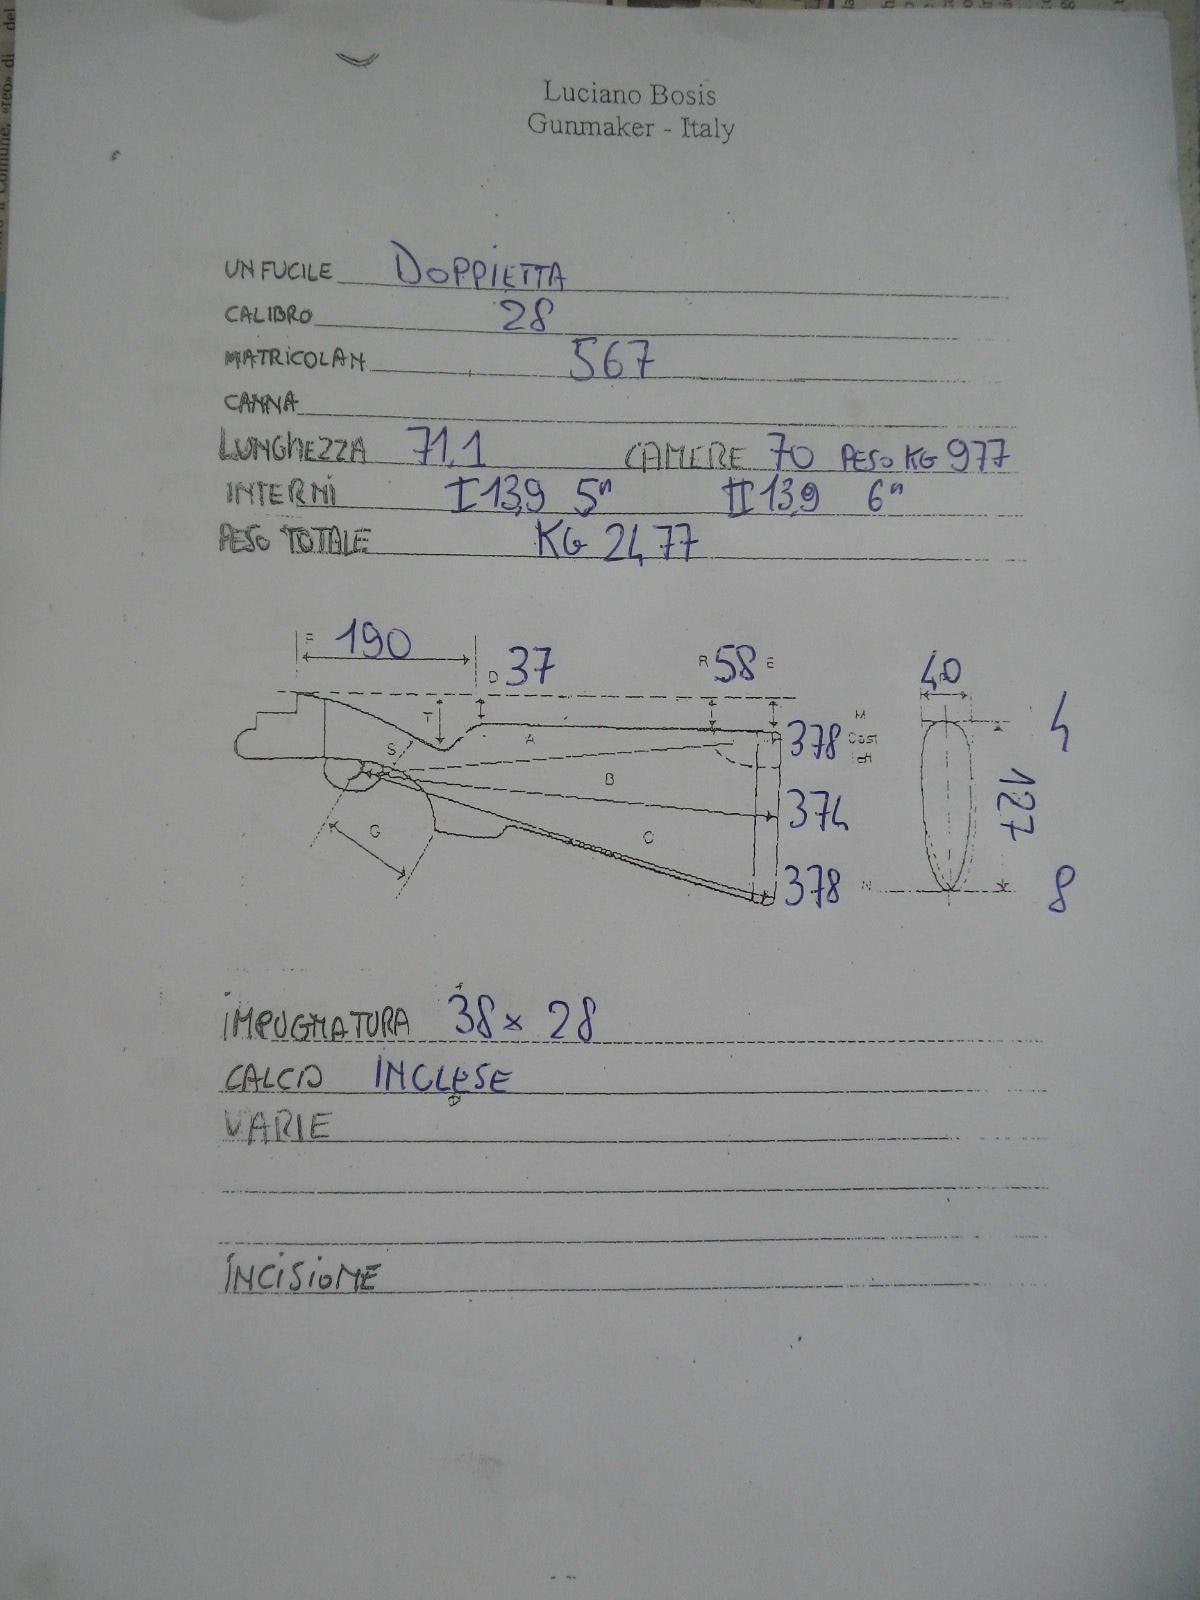 Luciano Bosis
Gunmaker - Italy
UN FUCILE DOPPIETTA
CALIBRO 28
MATRICOLA N 567
CANNA
LUNGHEZZA 71,1 CAMERE 70 PESO KG 977
INTERNI I 13,9 5" II 13,9 6"
PESO TOTALE KG 2477
F 190 D 37 R 58 E 40
T A S B C G
378 M 4
374 127
378 N 8
IMPUGNATURA 38 x 28
CALCIO INGLESE
VARIE
INCISIONE